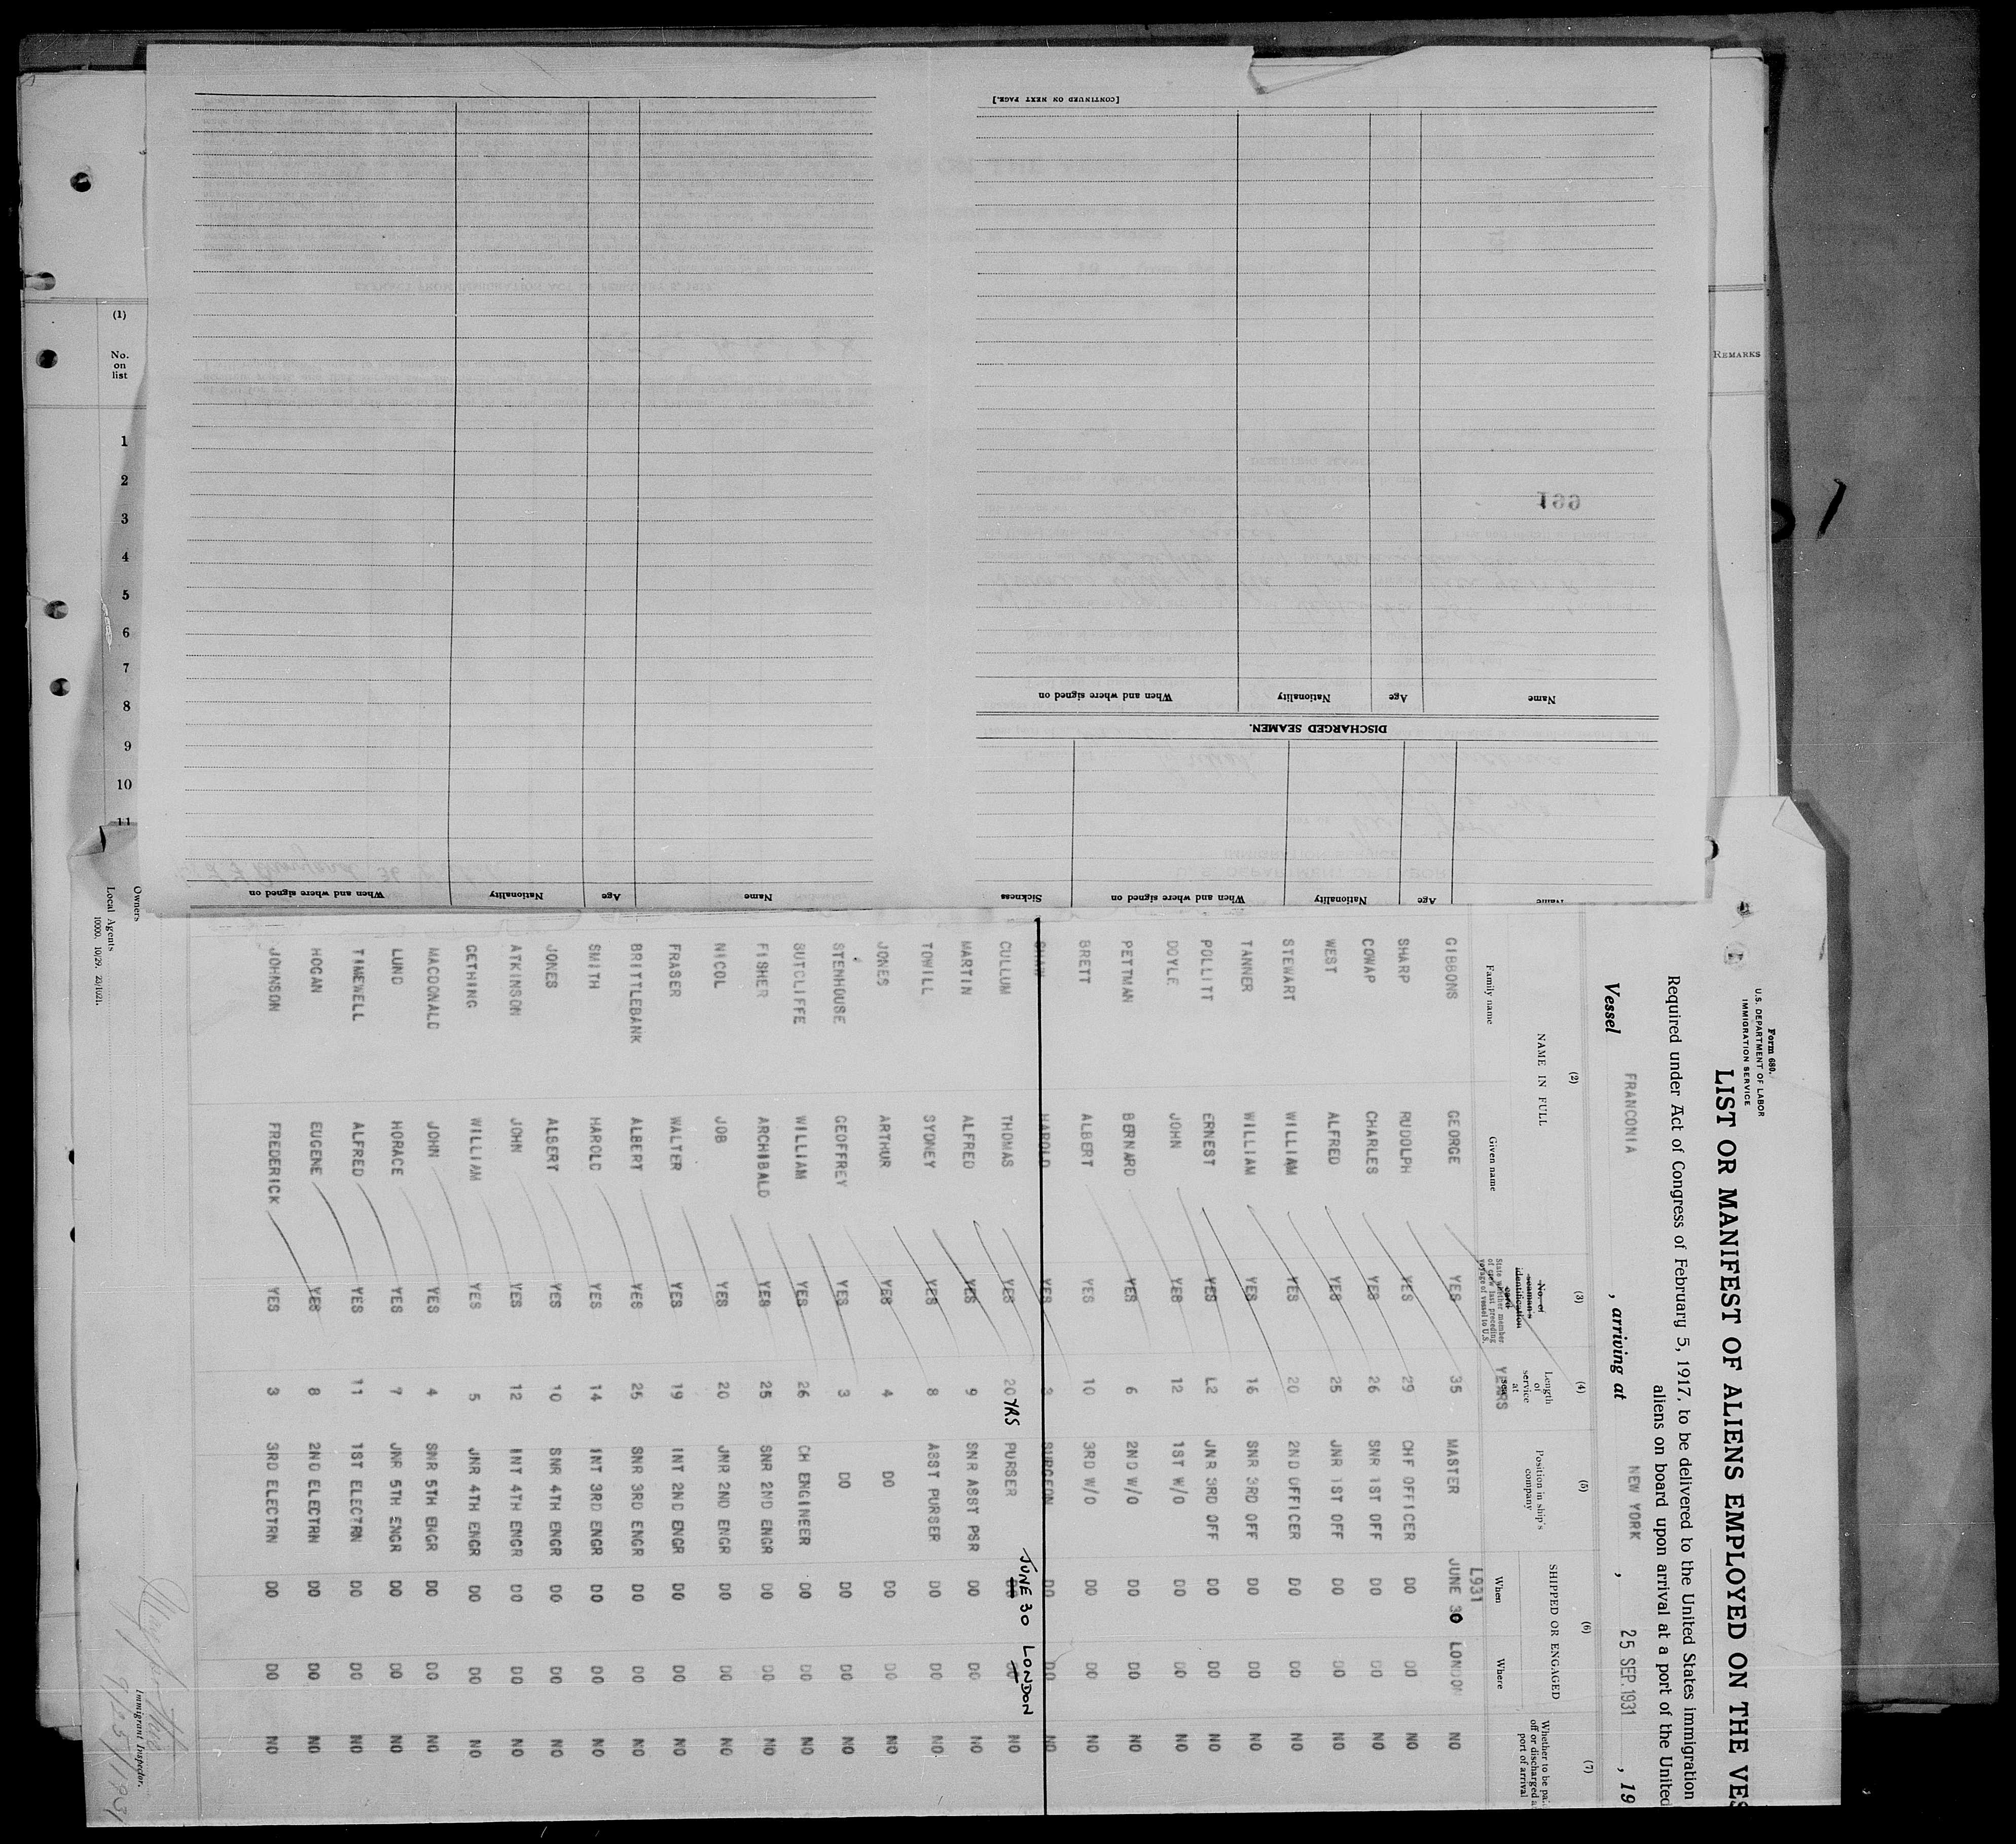 Form 680.
U.S. DEPARTMENT OF LABOR
IMMIGRATION SERVICE
LIST OR MANIFEST OF ALIENS EMPLOYED ON THE VES
Required under Act of Congress of February 5, 1917, to be delivered to the United States immigration
aliens on board upon arrival at a port of the United
Vessel FRANCONIA , arriving at NEW YORK , 25 SEP.1931 , 19
(2) (3) (4) (5) (6) (7)
NAME IN FULL
Family name Given name
No. of seaman's identification card
State whether member of crew last preceding voyage of vessel to U.S.
Length of service at sea YEARS
Position in ship's company
SHIPPED OR ENGAGED
When Where
Whether to be paid off or discharged at port of arrival
1931
GIBBONS GEORGE YES 35 MASTER JUNE 30 LONDON NO
SHARP RUDOLPH YES 29 CHF OFFICER DO DO NO
COWAP CHARLES YES 26 SNR 1ST OFF DO DO NO
WEST ALFRED YES 25 JNR 1ST OFF DO DO NO
STEWART WILLIAM YES 20 2ND OFFICER DO DO NO
TANNER WILLIAM YES 16 SNR 3RD OFF DO DO NO
POLLITT ERNEST YES L2 JNR 3RD OFF DO DO NO
DOYLE JOHN YES 12 1ST W/O DO DO NO
PETTMAN BERNARD YES 6 2ND W/O DO DO NO
BRETT ALBERT YES 10 3RD W/O DO DO NO
SHAW HAROLD YES 3 SURGEON DO DO NO
CULLUM THOMAS YES 20 YRS PURSER DO JUNE 30 DO LONDON NO
MARTIN ALFRED YES 9 SNR ASST PSR DO DO NO
TOWILL SYDNEY YES 8 ASST PURSER DO DO NO
JONES ARTHUR YES 4 DO DO DO NO
STENHOUSE GEOFFREY YES 3 DO DO DO NO
SUTCLIFFE WILLIAM YES 26 CH ENGINEER DO DO NO
FISHER ARCHIBALD YES 25 SNR 2ND ENGR DO DO NO
NICOL JOB YES 20 JNR 2ND ENGR DO DO NO
FRASER WALTER YES 19 INT 2ND ENGR DO DO NO
BRITTLEBANK ALBERT YES 25 SNR 3RD ENGR DO DO NO
SMITH HAROLD YES 14 INT 3RD ENGR DO DO NO
JONES ALBERT YES 10 SNR 4TH ENGR DO DO NO
ATKINSON JOHN YES 12 INT 4TH ENGR DO DO NO
GETHING WILLIAM YES 5 JNR 4TH ENGR DO DO NO
MACDONALD JOHN YES 4 SNR 5TH ENGR DO DO NO
LUND HORACE YES 7 JNR 5TH ENGR DO DO NO
TIMEWELL ALFRED YES 11 1ST ELECTRN DO DO NO
HOGAN EUGENE YES 8 2ND ELECTRN DO DO NO
JOHNSON FREDERICK YES 3 3RD ELECTRN DO DO NO
Immigrant Inspector.
Owners
Local Agents
10000. 10/29. 23/1021.
Name Age Nationality When and where signed on Sickness
DISCHARGED SEAMEN.
Name Age Nationality When and where signed on
[CONTINUED ON NEXT PAGE.]
Name Age Nationality When and where signed on
199
(1)
No. on list
1
2
3
4
5
6
7
8
9
10
11
REMARKS